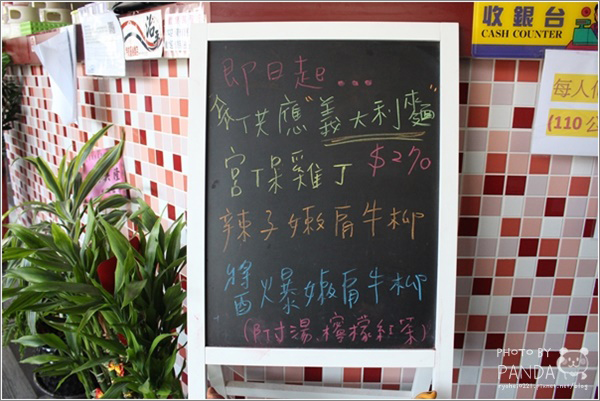 收銀台
CASH COUNTER
每人
(110公
即日起...
供應"義大利麵"
宮保雞丁 $270
辣子嫩肩牛柳
醬爆嫩肩牛柳
(附湯、檸檬紅茶)
PHOTO BY
PANDA